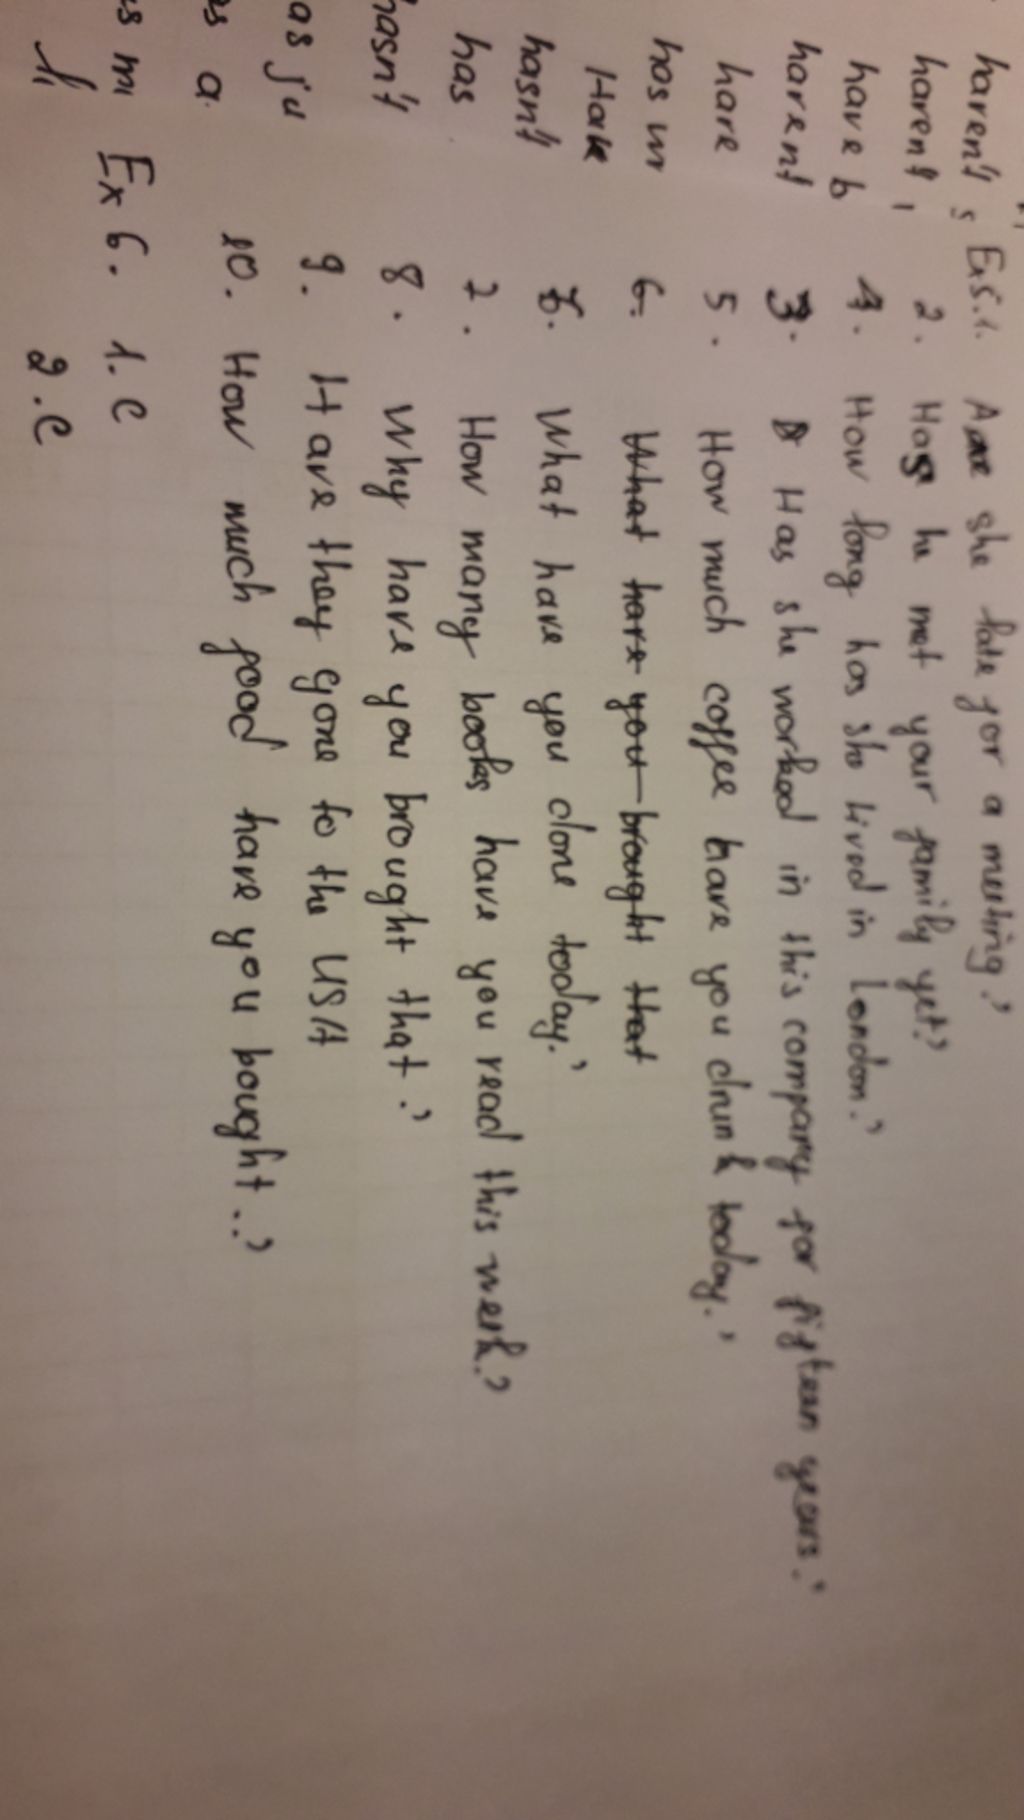 haven't s
haven't
have b
havent
have
has wr
Have
hasn't
has
hasn't
as ju
as a
s m
Ex5.1. Are she late for a meeting?
2. Has he met your family yet?
4. How long has she lived in London?
3. Has she worked in this company for fifteen years?
5. How much coffee have you drunk today?
6. What have you brought that
6. What have you done today?
7. How many books have you read this week?
8. Why have you brought that?
9. Have they gone to the USA
10. How much food have you bought..?
Ex 6. 1. c
2. c